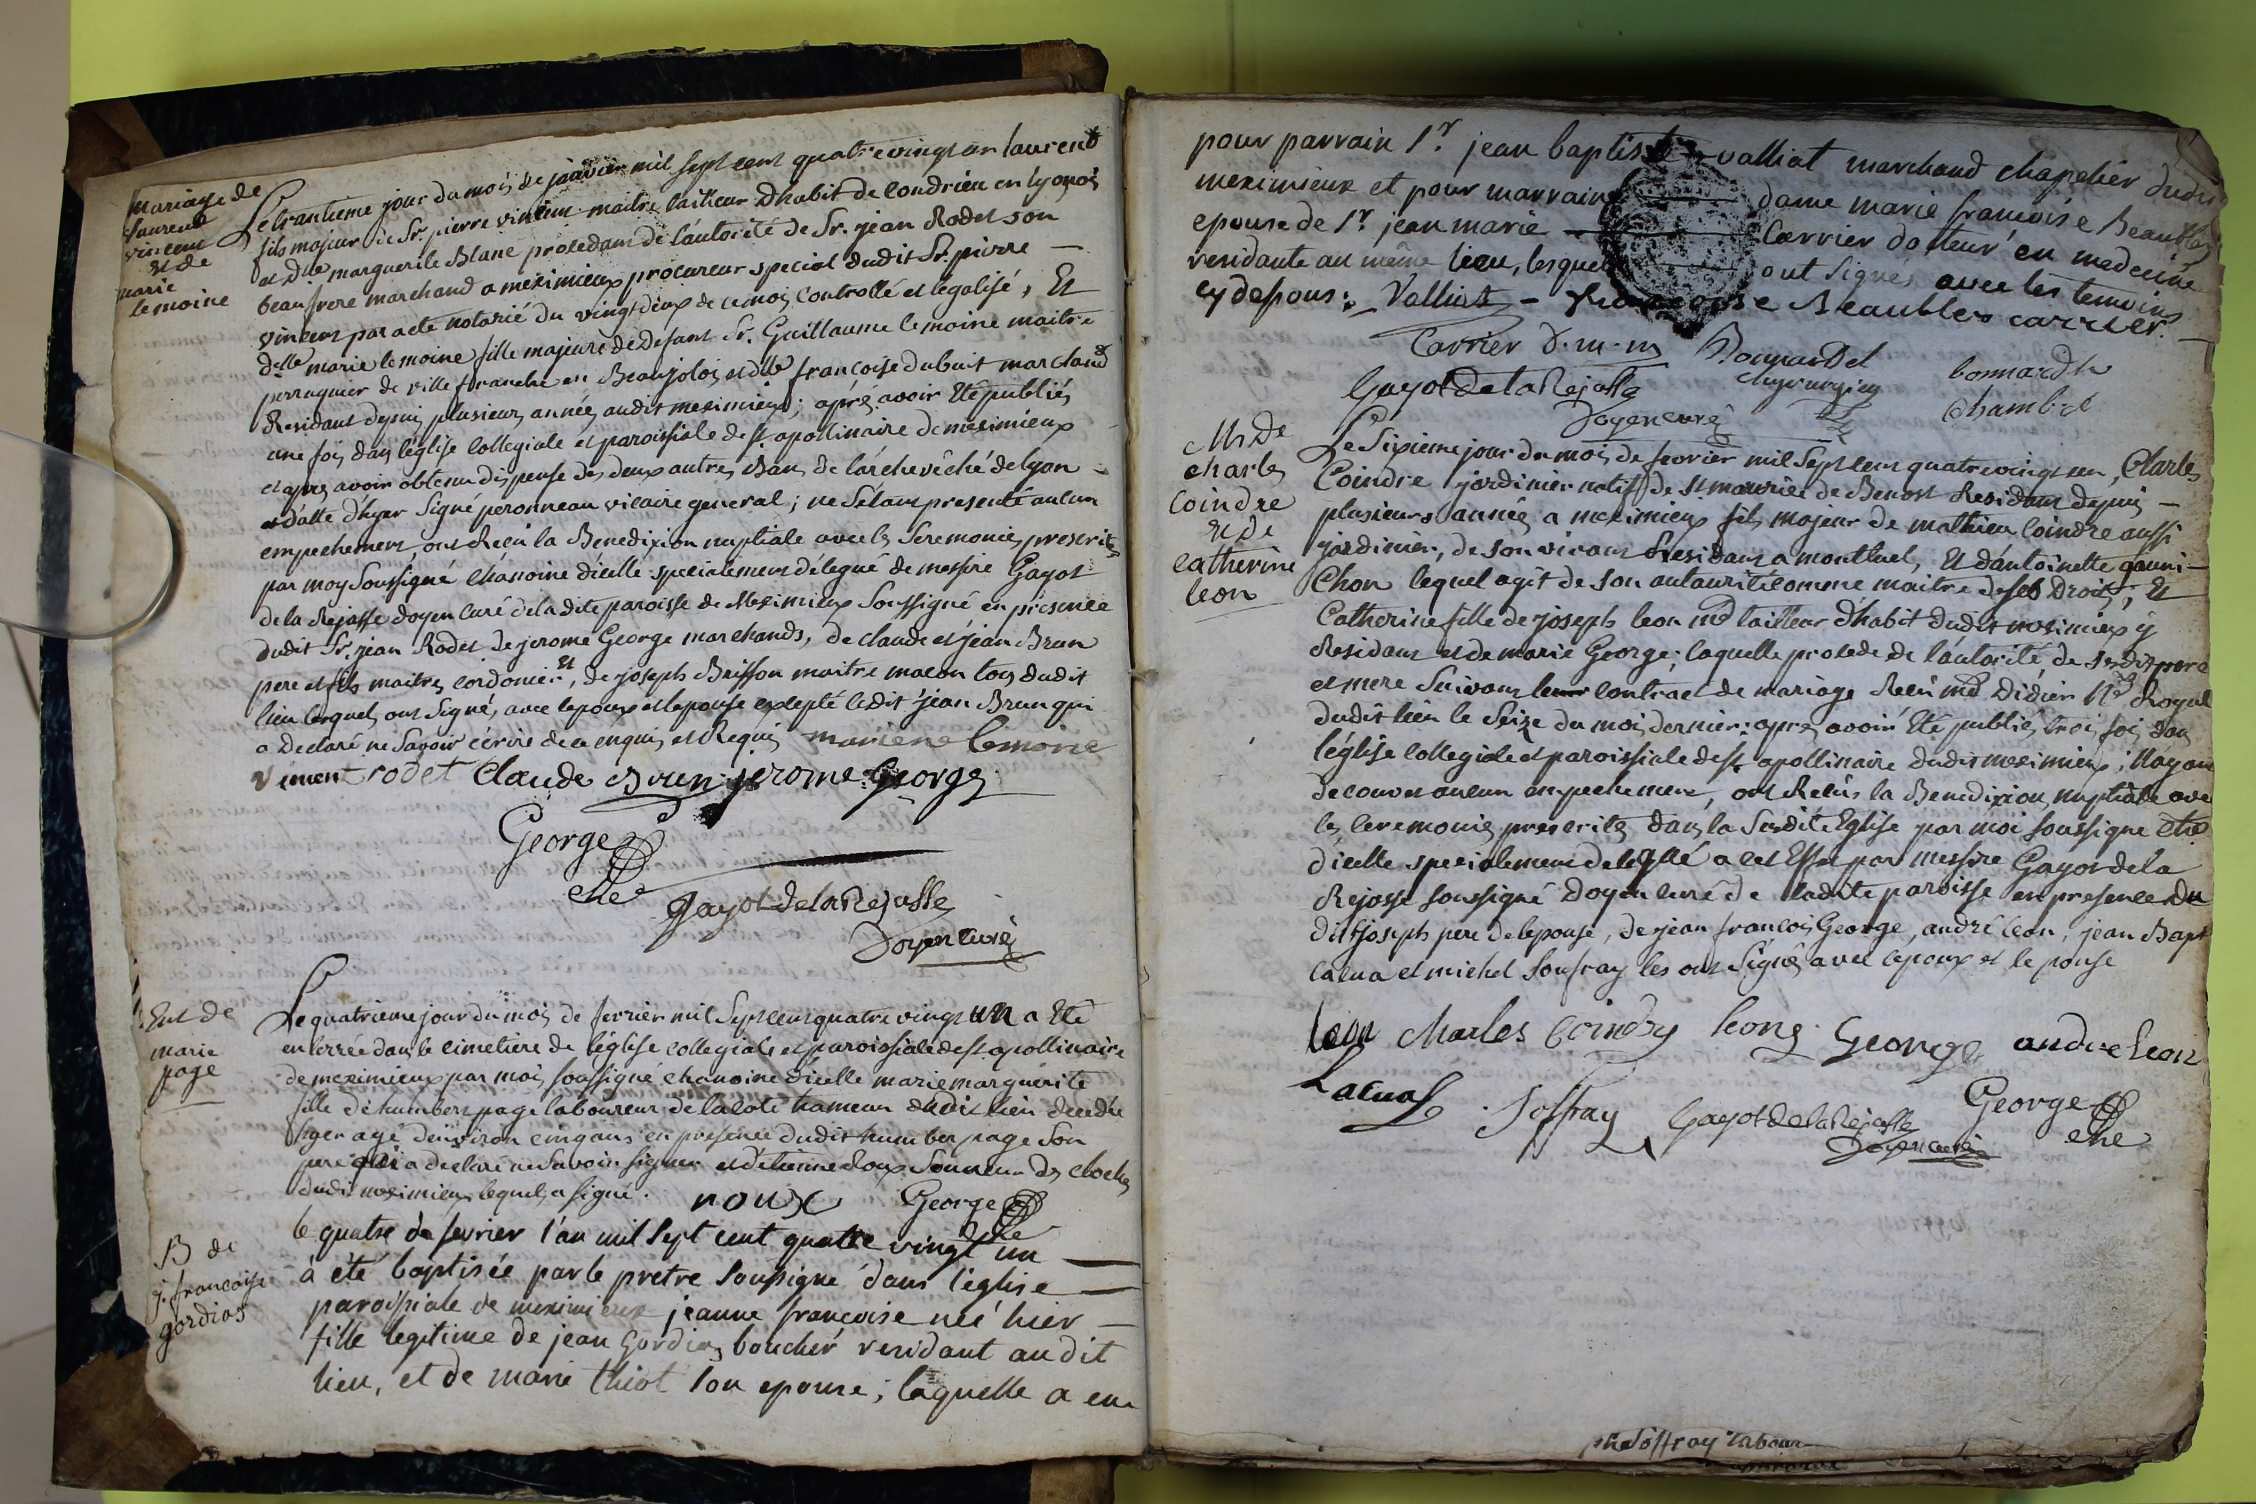 Mariage de
laurent
vincent
et de
marie
le moine
Le trantieme jour du mois de janvier mil sept cent quatrevingt un laurent
fils majeur de Sr. pierre vincent maitre tailleur d'habit de condrieu en lyonois
et dlle marguerite Blanc procedant de l'autorité de Sr. jean Rodet son
beaufrere marchand a meximieux procureur special dudit Sr. pierre —
vincent par acte notarié du vingt deux de ce mois, controllé et légalisé, Et
delle marie lemoine fille majeure de defunt Sr. Guillaume le moine maitre
perruquier de ville franche en Beaujolois et dlle françoise dubuit marchand
Residant depuis plusieurs années audit meximieux; après avoir Eté publiés
une fois dans l'église collegiale et paroissiale de st apollinaire de meximieux
et après avoir obtenu dispense des deux autres Bans de l'archevêché de lyon —
datte d'hyer Signé peronneau vicaire general; ne S'étant presenté aucun
empechement, ont Reçu la Benedixion nuptiale avec les Seremonies prescrites
par moy Soussigné chanoine dicelle specialement délegué de messire Gayot
de la Rejasse doyen curé de ladite paroisse de Meximieux Soussigné en presence
dudit Sr. jean Rodet de jerome George marchands, de claude et jean Brun
pere et fils maitres cordonier, et de joseph Brisson maitre macon tous dudit
lieu lesquels ont Signé, avec lepoux et lepouse excepté ledit jean Brun qui
a declaré ne Savoir écrire de ce enquis et Requis mariene lemoine
vincent rodet Claude Brun jerome George
George
che
Gayot de la Rejasse
Doyen curé
Ent de
marie
page
Le quatrieme jour du mois de fevrier mil Sept cent quatre vingt un a Eté
enterrée dans le cimetiere de l'église collegiale et paroissiale de st apollinaire
de meximieux par moi soussigné chanoine dicelle marie marguerite
fille de humbert page laboureur de la cote hameau dudit lieu
agé d'environ cinq ans en presence dudit humbert page Son
pere qui a declaré ne Savoir signer et d'etienne Roux Sonneur des cloches
dudit meximieux lequel a signé. roux George
che
B de
j. françoise
gordias
le quatre de fevrier l'an mil sept cent quatre vingt un —
a été baptisée par le pretre soussigné dans l'église —
paroissiale de meximieux jeanne françoise née hier —
fille legitime de jean Gordias boucher residant audit
lieu, et de marie thiot son epouse; laquelle a eu
pour parrain Sr. jean baptiste valliat marchand chapelier dudit
meximieux et pour marraine dame marie françoise Beaublez
epouse de Sr. jean marie Carrier docteur en medecine
residante au même lieu, lesquels ont signés avec les temoins
cy dessous: Valliat — françoise Beaublez carrier.
Carrier d.m.m Bonnardel
chyrurgien bonnardel
Gayot de la Rejasse
Doyen curé Chambre
M. De
Charles
Coindre
Et De
Catherine
leon
Le Sixieme jour du mois de fevrier mil Sept cent quatrevingt un, Charles
Coindre jardinier natif de St maurice de Benost Residant depuis —
plusieurs années a meximieux fils majeur de mathieu Coindre aussi
jardinier, de son vivant Residant a montluel, Et d'antoinette
Chon lequel agit de son autaurité comme maitre de ses Droits; Et
Catherine fille de joseph leon md tailleur d'habit dudit meximieux y
Residant et de marie George; laquelle procede de l'autorité de sesdits pere
et mere Suivant contract de mariage Recu me Didier Nre Royal
dudit lieu le Seize du mois dernier: après avoir Eté publiés trois fois dans
l'église collegiale et paroissiale de st apollinaire dudit meximieux; N'ayant
decouvert aucun empechement, ont Reçus la Benedixion nuptiale avec
les ceremonies prescrites dans la Susdite Eglise par moi soussigné che
dicelle specialement delegué a cet Effet par messire Gayot de la
Rejasse soussigné Doyen curé de ladite paroisse en presence du
dit joseph pere de lepouse, de jean françois George, andré leon, jean Bapt
lacua et michel Soufray les ont Signés avec lepoux et lepouse
leon Charles Coindre leon George andre leon
Lacua Soffray Gayot de la Rejasse
Doyen curé George
che